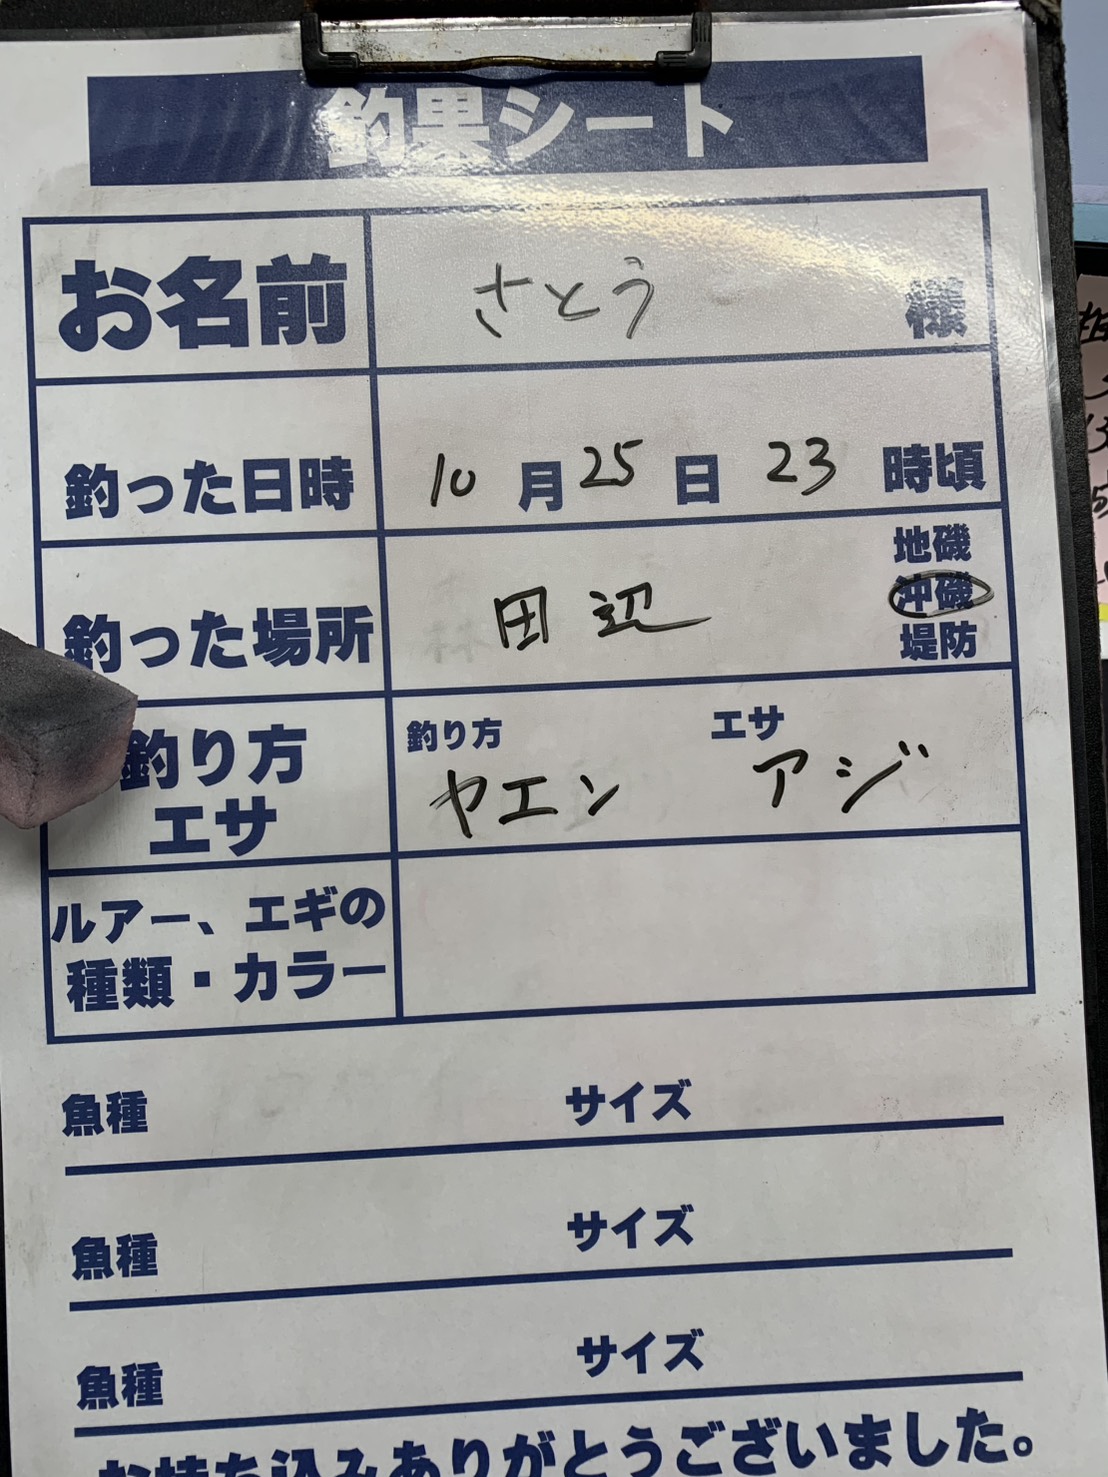 釣果シート
お名前 さとう 様
釣った日時 10月25日 23時頃
釣った場所 田辺 地磯 沖磯 堤防
釣り方 エサ 釣り方 ヤエン エサ アジ
ルアー、エギの種類・カラー
魚種 サイズ
魚種 サイズ
魚種 サイズ
お持ち込みありがとうございました。